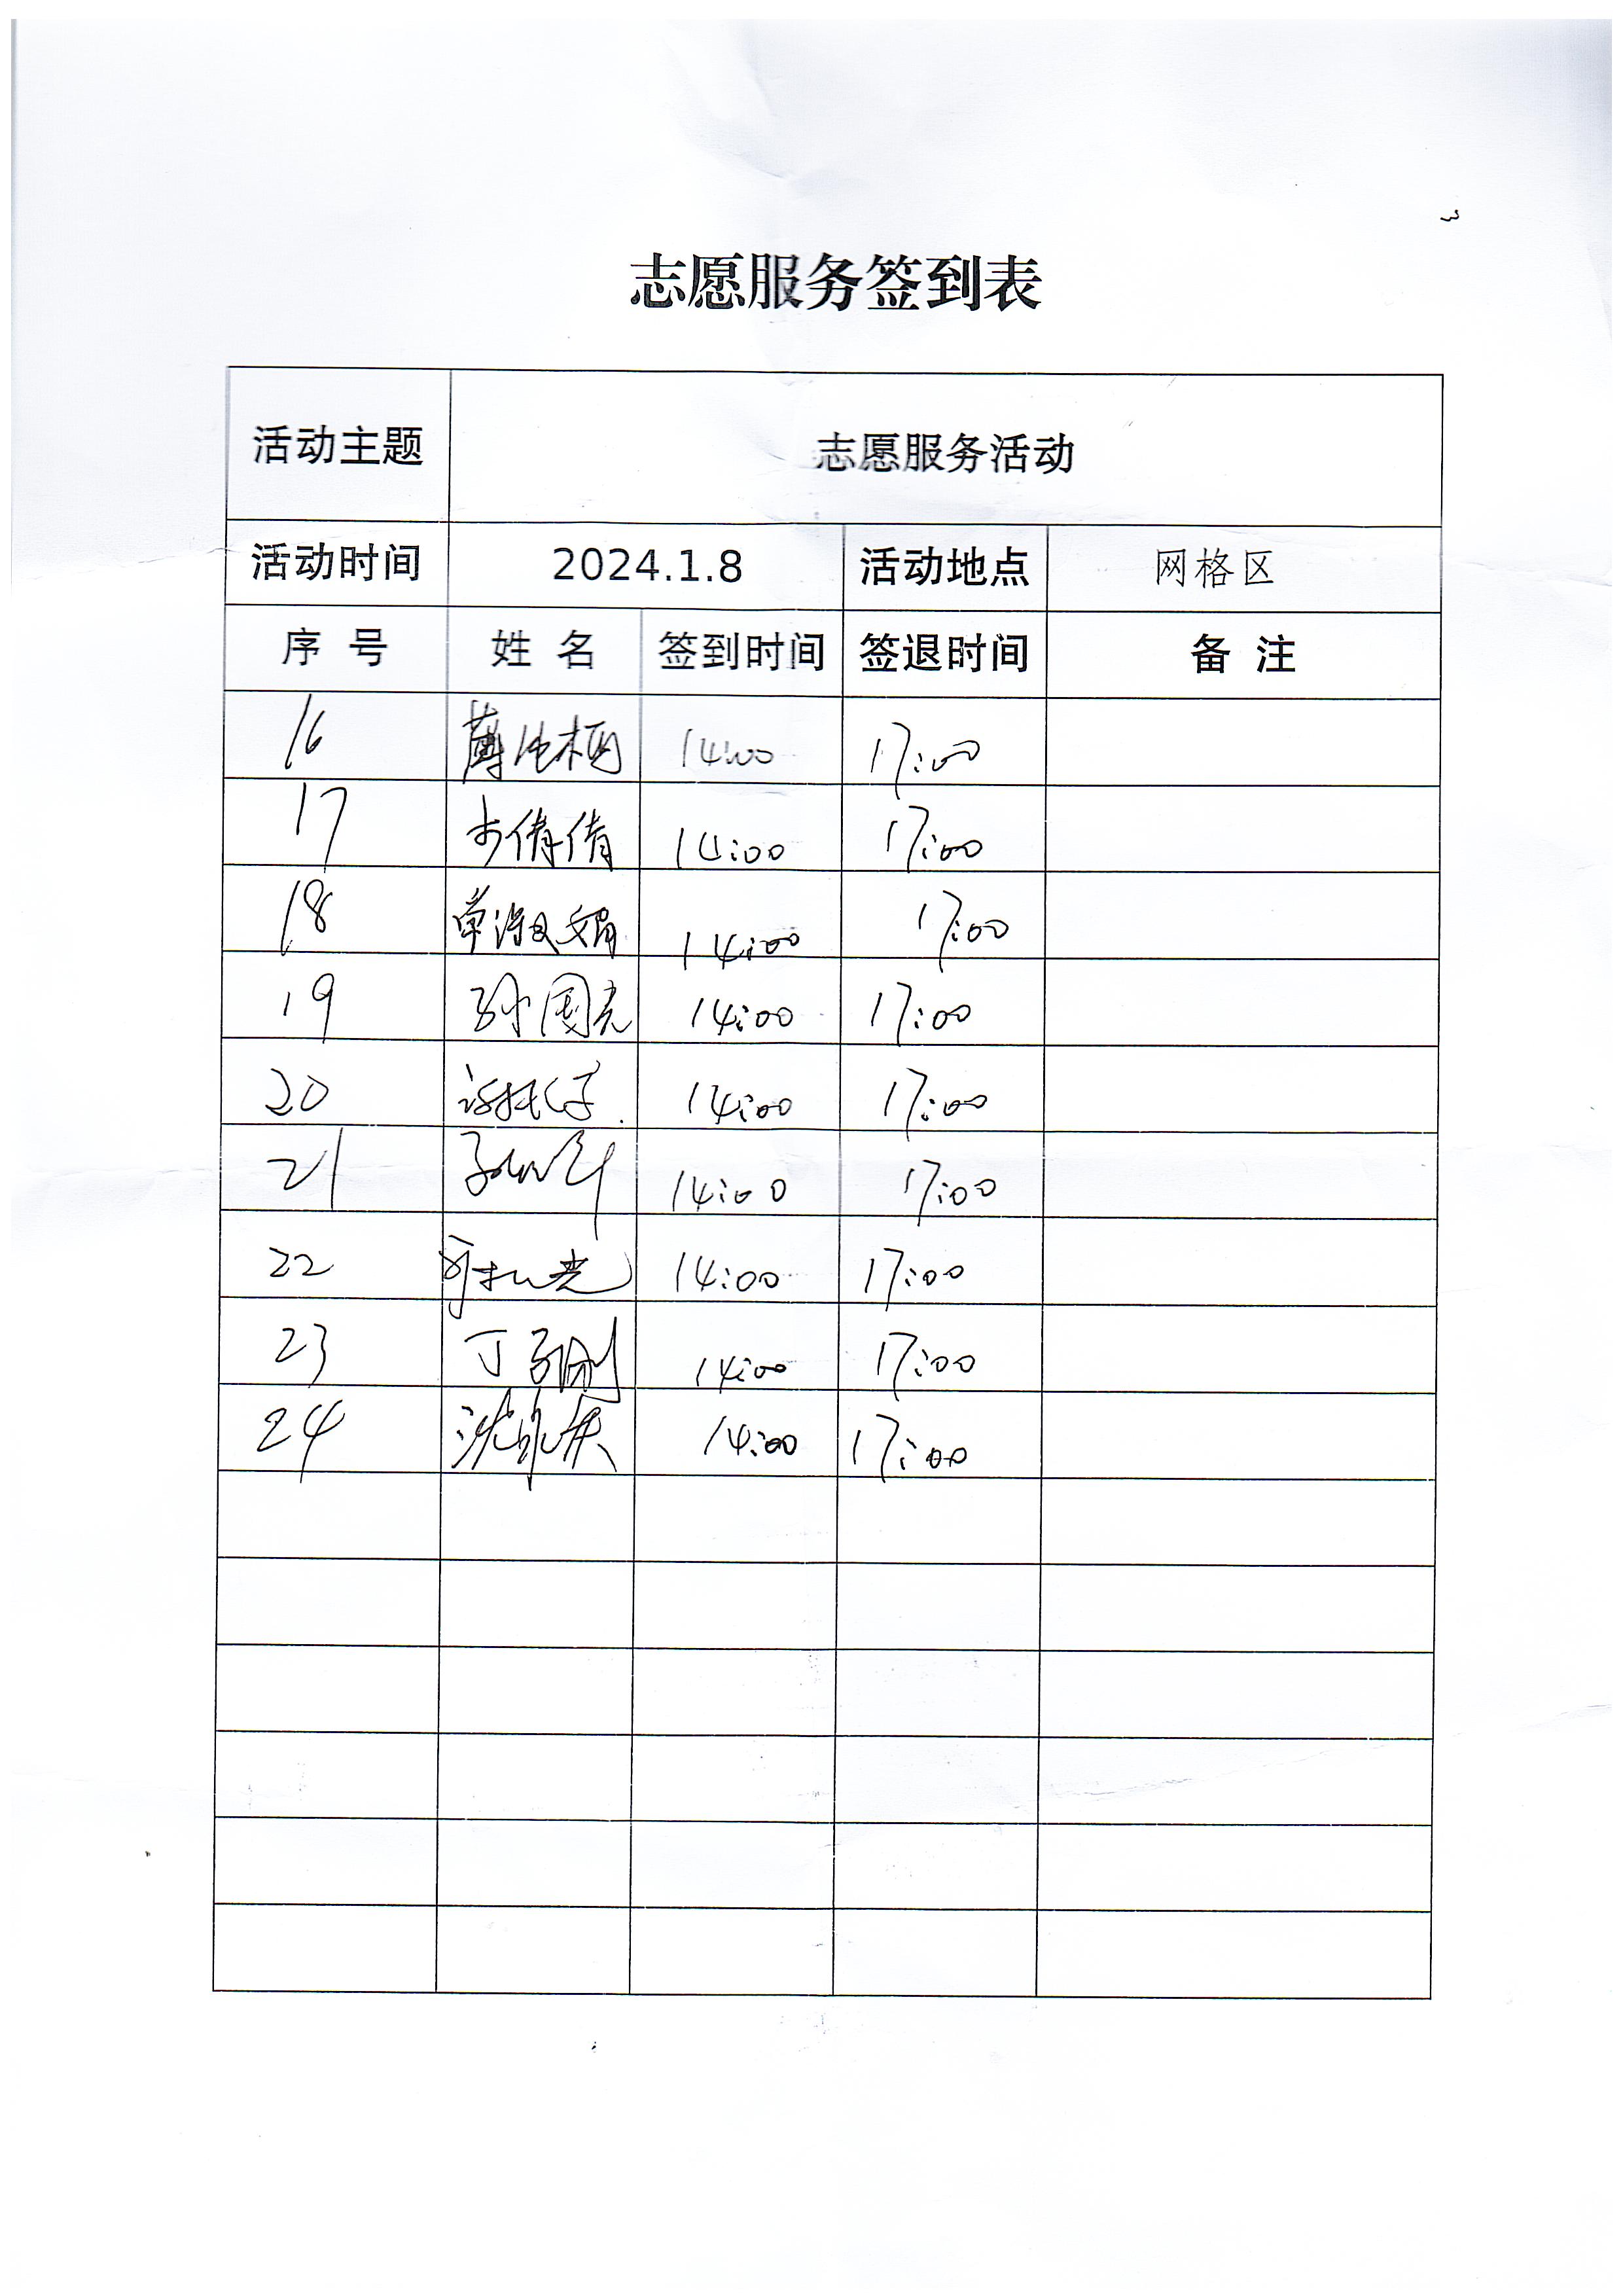 志愿服务签到表
活动主题 志愿服务活动
活动时间 2024.1.8 活动地点 网格区
序号 姓名 签到时间 签退时间 备注
16 14:00 17:00
17 倩倩 14:00 17:00
18 单淑娟 14:00 17:00
19 孙国亮 14:00 17:00
20 14:00 17:00
21 14:00 17:00
22 14:00 17:00
23 丁 刚 14:00 17:00
24 沈 14:00 17:00